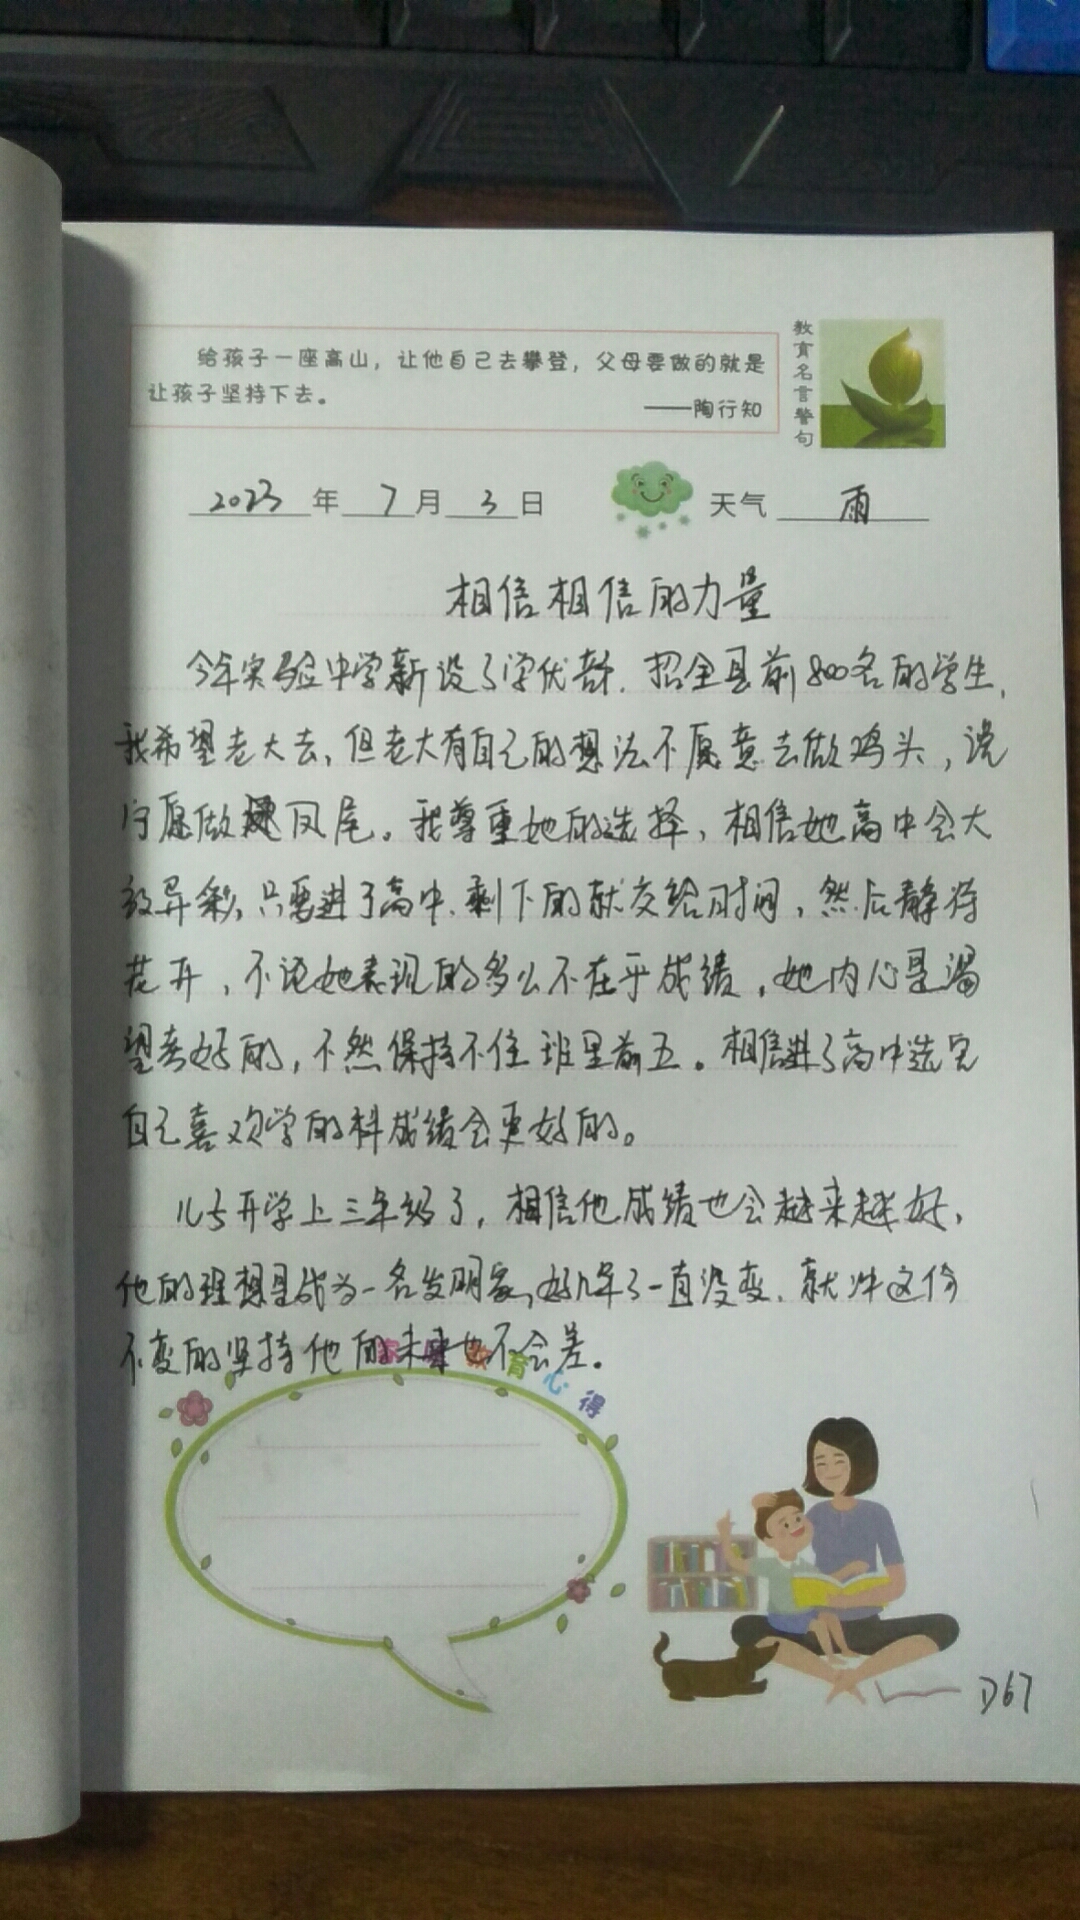 给孩子一座高山，让他自己去攀登，父母要做的就是
让孩子坚持下去。
——陶行知
教育名言警句
2023年7月3日 天气 雨
相信相信的力量
今年实验中学新设了学优部，招全县前800名的学生，
我希望老大去，但老大有自己的想法不愿意去做鸡头，说
宁愿做凤尾。我尊重她的选择，相信她高中会大
放异彩，只要进了高中，剩下的就交给时间，然后静待
花开，不论她表现的多么不在乎成绩，她内心是渴
望考好的，不然保持不住班里前五。相信进了高中选完
自己喜欢学的科成绩会更好的。
儿子开学上三年级了，相信他成绩也会越来越好，
他的理想是成为一名发明家，好几年了一直没变，就冲这份
不变的坚持他的未来也不会差。
育心得
D67